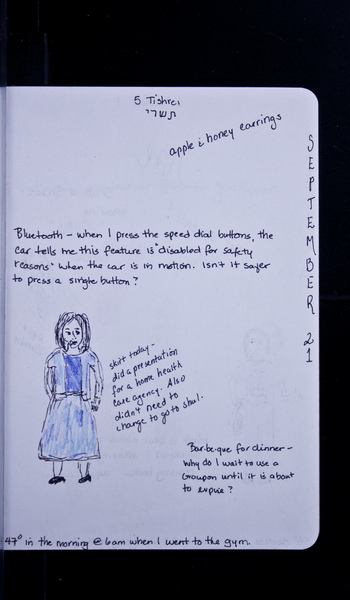 5 Tishrei
תשרי
apple & honey earrings
SEPTEMBER 21
Bluetooth - when I press the speed dial buttons, the
car tells me this feature is "disabled for safety
reasons" when the car is in motion. Isn't it safer
to press a single button?
skirt today -
did a presentation
for a home health
care agency. Also
didn't need to
change to go to shul.
Bar-be-que for dinner -
why do I wait to use a
Groupon until it is about
to expire?
47° in the morning @ 6am when I went to the gym.